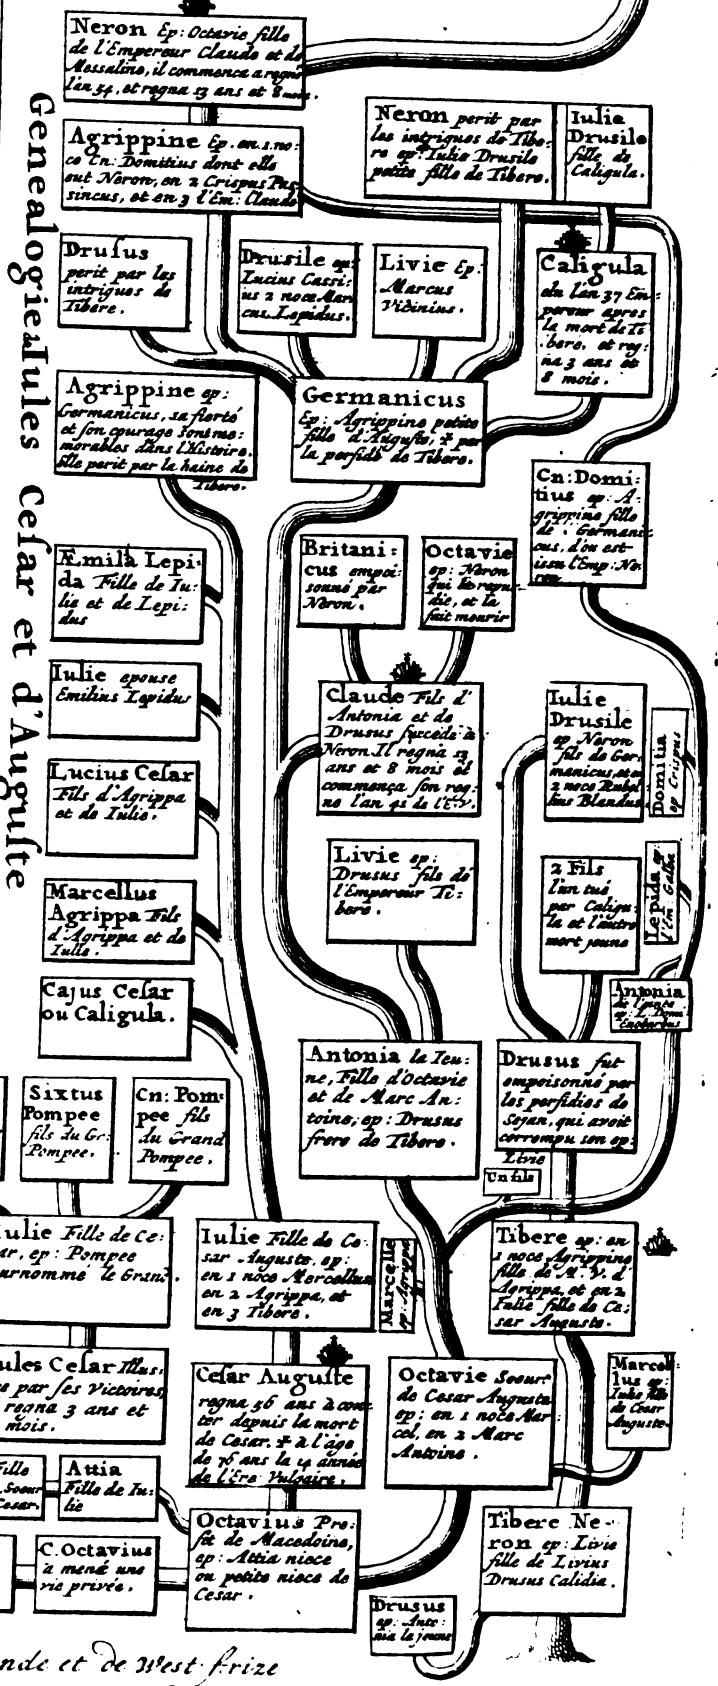 Genealogie d Iules Cesar et d'Auguste
Neron Ep: Octavie fille
de l'Empereur Claude et de
Messaline, il commenca a regne
l'an 54, et regna 13 ans et 8 mois.
Agrippine Ep. en 1. no:
ce Cn: Domitius dont elle
eut Neron, en 2 Crispus Pas
sincus, et en 3 l'Em: Claude
Neron perit par
les intrigues de Tibe:
re ep: Iulie Drusile
petite fille de Tibere.
Iulie
Drusile
fille de
Caligula.
Drusus
perit par les
intrigues de
Tibere.
Drusile ep:
Lucius Cassi:
us 2 noce Mar
cus Lepidus.
Livie Ep:
Marcus
Vicinius.
Caligula
elu l'an 37 Em:
pereur apres
la mort de Ti
bere. et reg:
na 3 ans et
8 mois.
Agrippine ep:
Germanicus, sa fierté
et son courage sont me:
morables dans l'Histoire.
Elle perit par la haine de
Tibere.
Germanicus
Ep: Agrippine petite
fille d'Auguste, † par
la perfidé de Tibere.
Cn: Domi:
tius ep: A:
grippine fille
de Germani:
cus, d'ou est
issu l'Emp: Ne:
ron
Æmila Lepi:
da Fille de Iu:
lie et de Lepi:
dus
Britani:
cus empoi:
sonné par
Neron.
Octavie
ep: Neron
qui la repu
die, et la
fait mourir
Iulie epouse
Emilius Lepidus
Claude Fils d'
Antonia et de
Drusus succede à
Neron. Il regna 13
ans et 8 mois et
commença son reg:
ne l'an 41 de l'E.V.
Iulie
Drusile
ep Neron
fils de Ger:
manicus, et en
2 noce Rubel
lius Blandus
Domitia
ep Crispus
Lucius Cesar
Fils d'Agrippa
et de Iulie.
Livie ep:
Drusus fils de
l'Empereur Ti:
bere.
2 Fils
l'un tué
par Caligu:
la et l'autre
mort jeune
Lepida ep:
l'Em: Galba
Marcellus
Agrippa Fils
d'Agrippa et de
Iulie.
Cajus Cesar
ou Caligula.
Antonia
ep: L. Domi
Enobarbus
Antonia la Ieu:
ne, Fille d'Octavie
et de Marc An:
toine, ep: Drusus
frere de Tibere.
Drusus fut
empoisonné par
les perfidies de
Sejan, qui avoit
corrompu son ep:
Livie
Un fils
Sixtus
Pompee
fils du Gr:
Pompee.
Cn: Pom:
pee fils
du Grand
Pompee.
Iulie Fille de Ce:
ar, ep: Pompee
urnommé le Grand.
Iulie Fille de Ce:
sar Auguste, ep:
en 1 noce Mercellus
en 2 Agrippa, et
en 3 Tibere.
Marcelle
ep: Agrippa
Tibere ep: en
1 noce Agrippine
fille de M. V. d'
Agrippa, et en 2
Iulie fille de Ce:
sar Auguste.
ules Cesar Illus:
e par ses victoires,
regna 3 ans et
mois.
Cesar Auguste
regna 56 ans à con:
ter depuis la mort
de Cesar. † à l'âge
de 76 ans la 14 année
de l'Ere Vulgaire.
Octavie Soeur
de Cesar Auguste
ep: en 1 noce Mar
cel, en 2 Marc
Antoine.
Marcel:
lus ep:
Iulie fille
de Cesar
Auguste
Fille
Soeur
Cesar.
Attia
Fille de Iu:
lie
C. Octavius
a mené une
vie privée.
Octavius Pre:
fet de Macedoine,
ep: Attia niece
ou petite niece de
Cesar.
Tibere Ne:
ron ep: Livie
fille de Livius
Drusus Calidia.
Drusus
ep: Anto:
nia la jeune
nde et de West-frize